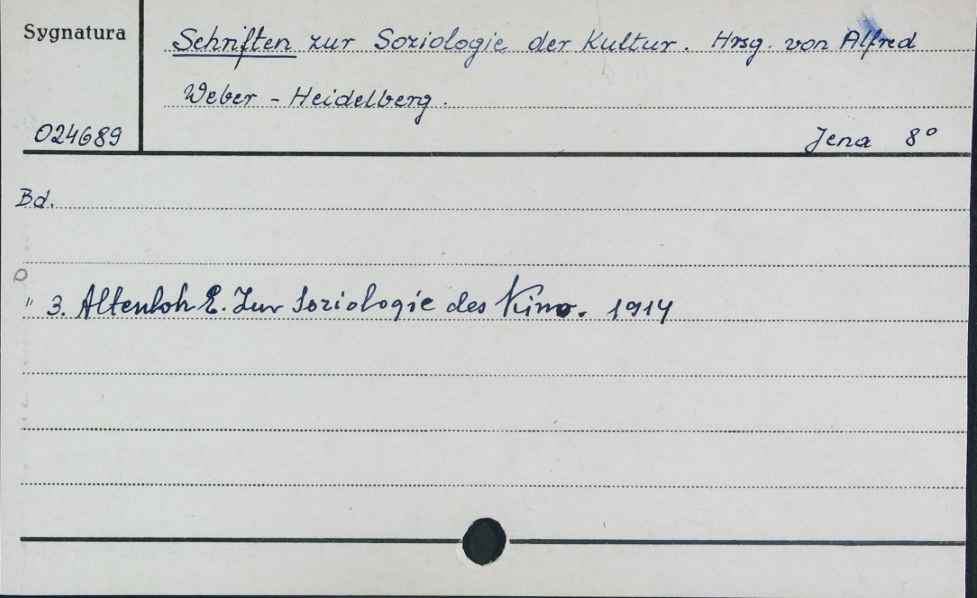 Sygnatura
Schriften zur Soziologie der Kultur. Hrsg. von Alfred
Weber - Heidelberg.
024689
Jena 8°
Bd.
" 3. Altenloh E. Zur Soziologie des Kino. 1914